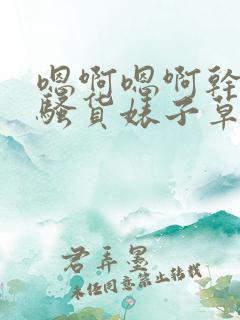 嗯啊嗯啊幹
騷货婊子草
君弄墨
未经同意禁止转载